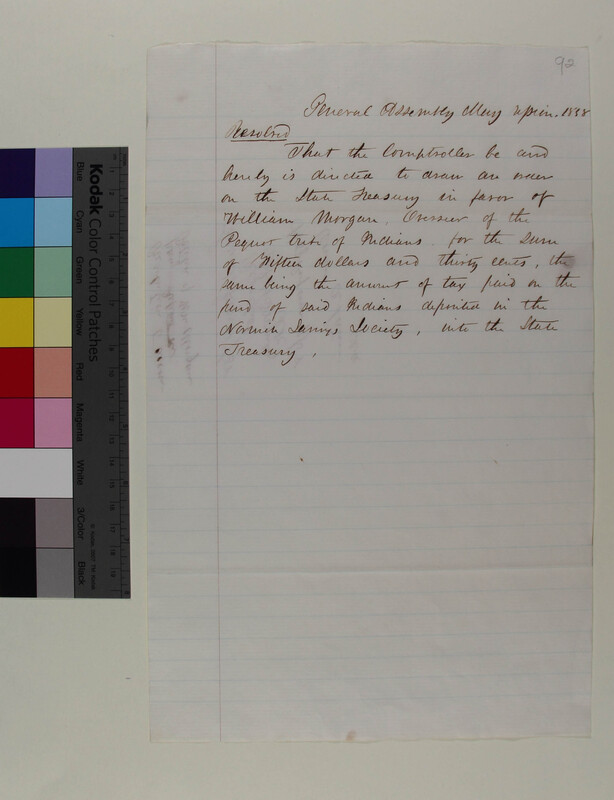 92
General Assembly May Session. 1858
Resolved
That the Comptroller be and
hereby is directed to draw an order
on the State Treasury in favor of
William Morgan, Overseer of the
Pequot tribe of Indians, for the sum
of Fifteen dollars and thirty cents, the
same being the amount of tax paid on the
fund of said Indians deposited in the
Norwich Savings Society, into the State
Treasury.
Kodak Color Control Patches
Blue
Cyan
Green
Yellow
Red
Magenta
White
3/Color
Black